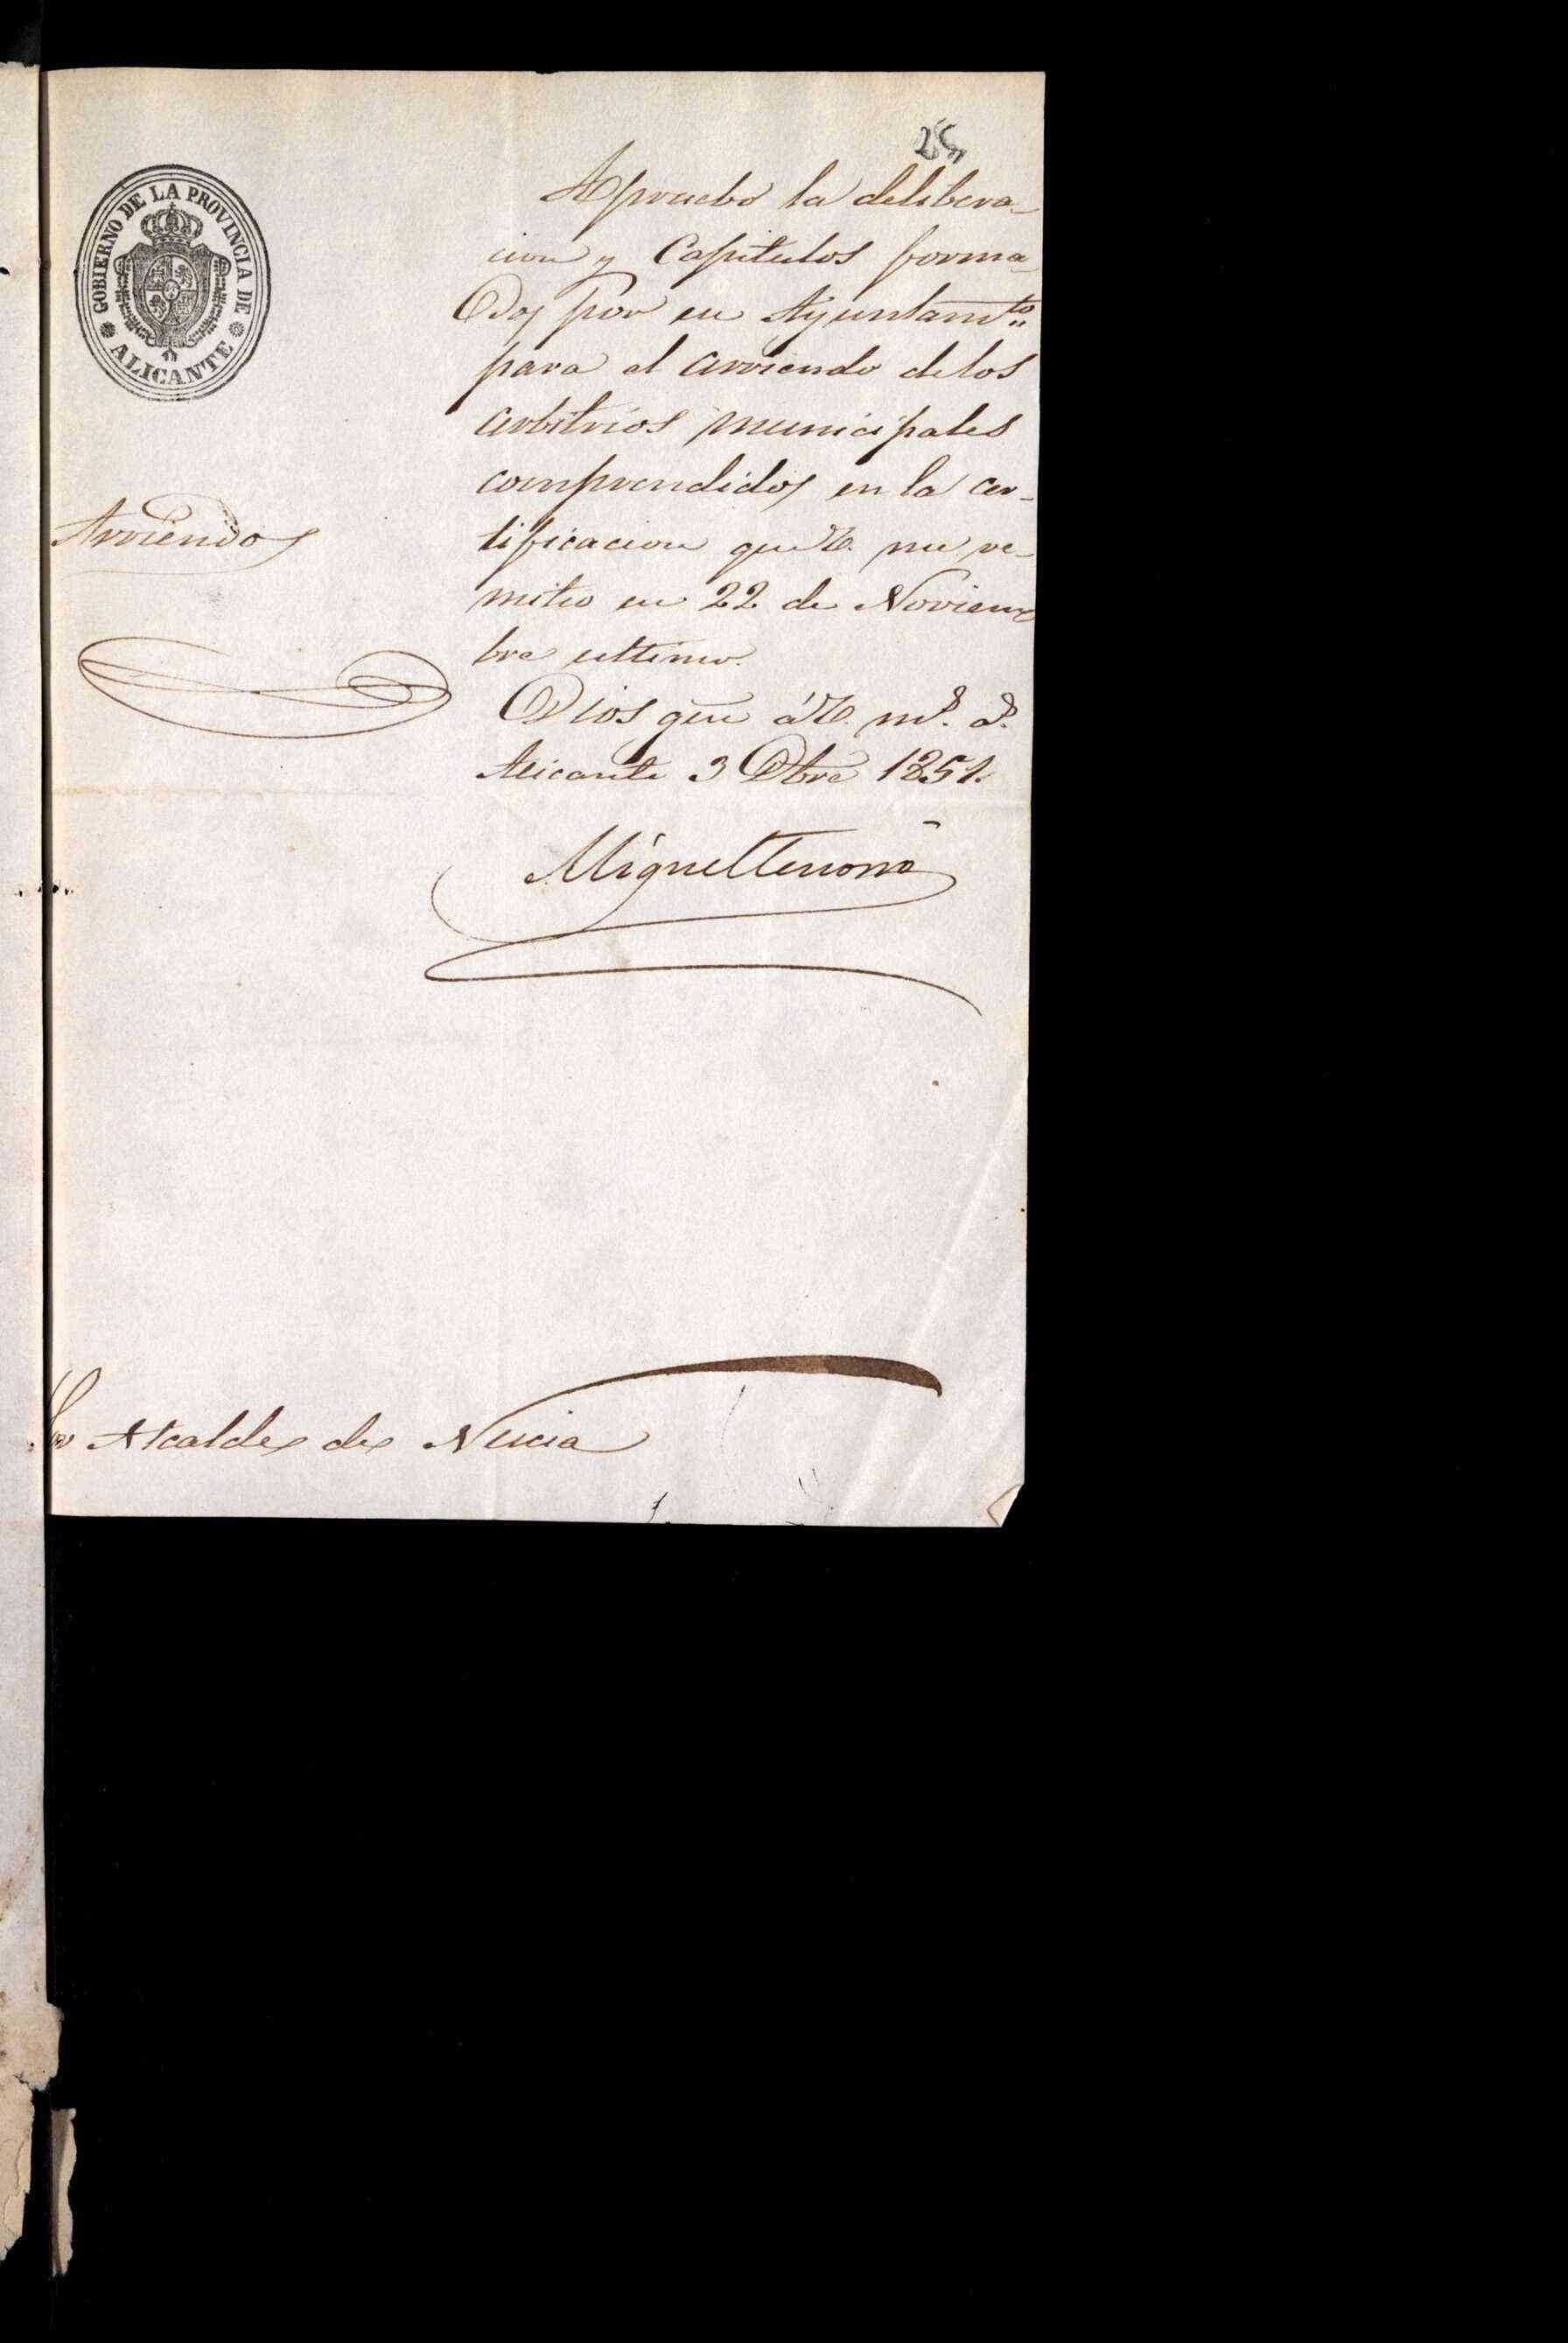 25
GOBIERNO DE LA PROVINCIA DE
ALICANTE
Apruebo la delibera-
cion y Capitulos forma-
dos por ese Ayuntamto
para el arriendo de los
arbitrios municipales
comprendidos en la cer-
tificacion que V. me re-
mitio en 22 de Noviem
bre ultimo.
Dios gue á V. ms. as.
Alicante 3 Dbre 1851.
Arriendos
Miguel
Sor Alcalde de Nucia